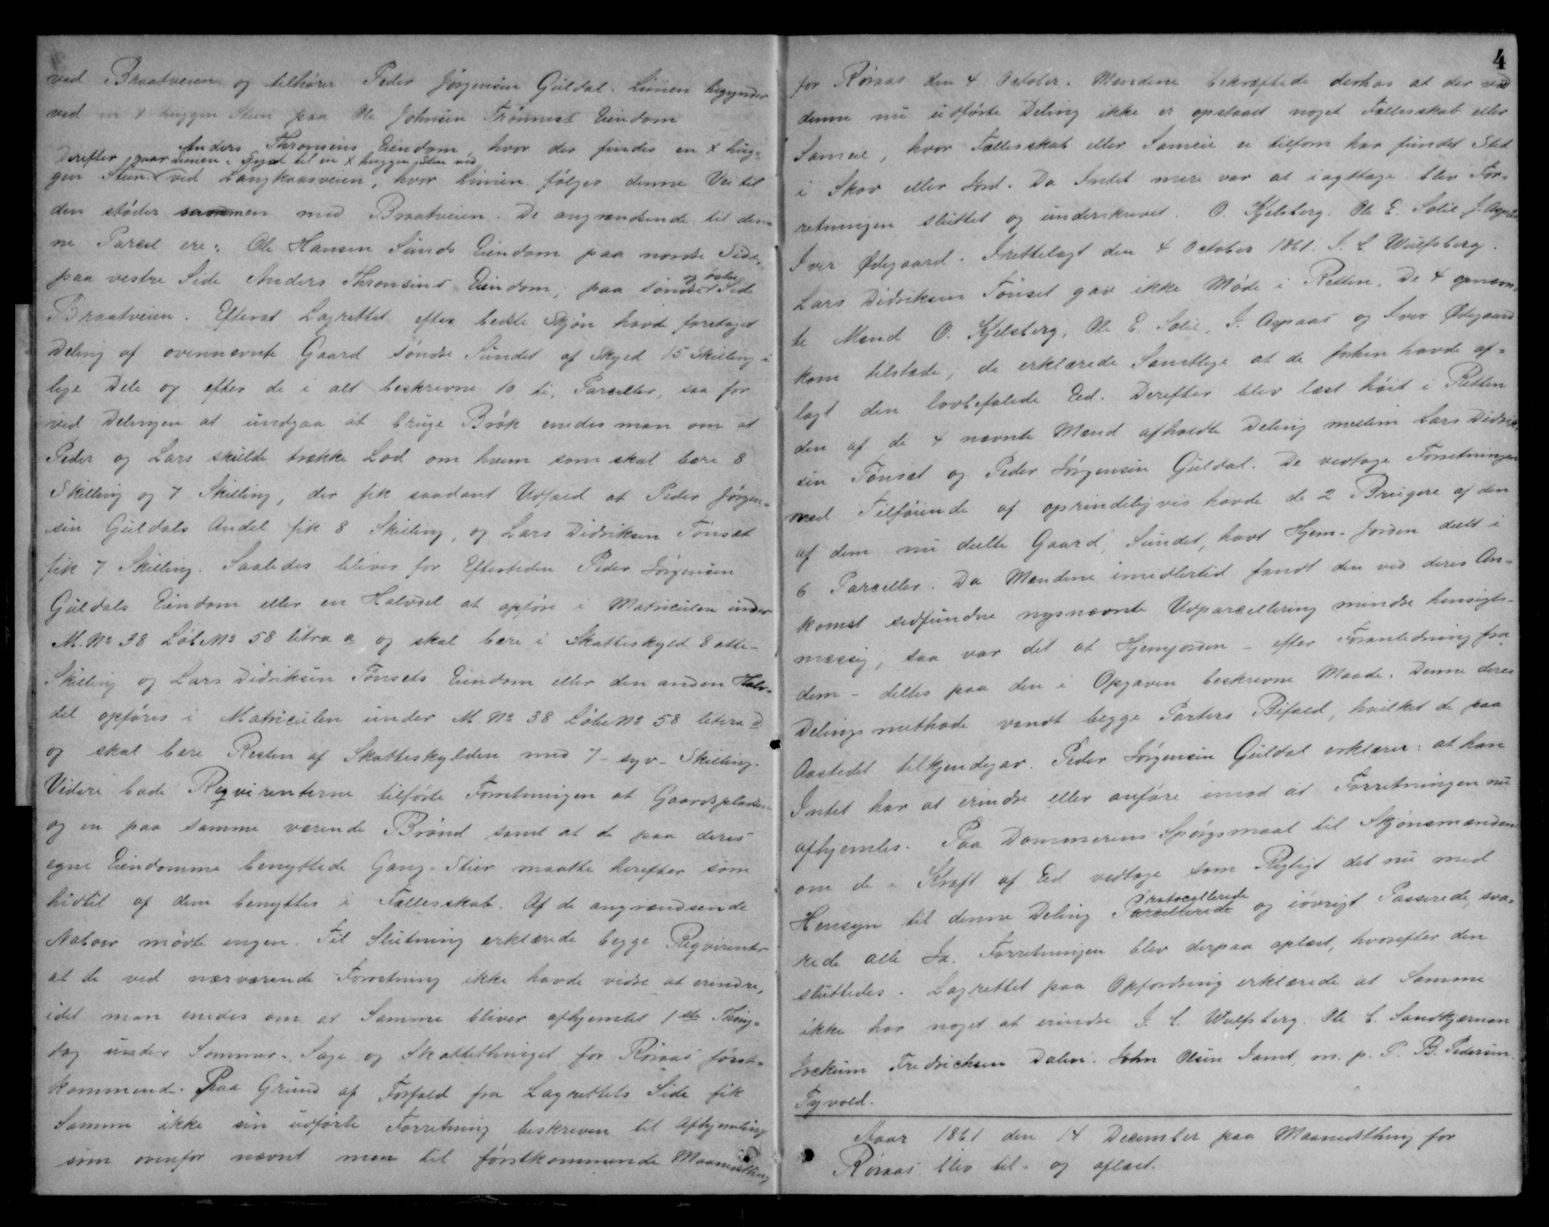 ved Braatveien og tilhører Peder Jørgensen Guldal. Linien begynder
ved en x huggen Steen paa Ole Johnsen Trønnest Eiendom
Derefter gaar Linien i Syost til en x huggen Steen ved
Anders Thronsens Eiendom, hvor der findes en x hug-
gen Steen ved Langkaasveien, hvor Linien følger denne Vei til
den støder sammen med Braatveien. De angrændsende til den-
ne Parcel ere: Ole Hansen Sunds Eiendom paa nordre Side,
paa vestre Side Anders Thronsens Eiendom, paa søndre og østre Side
Braatveien. Efterat Lagrettet efter bedste Skjøn havde foretaget
Deling af ovennævnte Gaard søndre Sundet af Skyld 15 Skilling i
lige Dele og efter de i alt beskrevne 10 ti, Parceller, saa for
ved Delingen at undgaa at bruge Brøk enedes man om at
Peder og Lars skulde trække Lod om hvem som skal bære 8
Skilling og 7 Skilling, der fik saadant Udfald at Peder Jørgen-
sen Guldals Andel fik 8 Skilling, og Lars Didriksen Tønset
fik 7 Skilling. Saaledes bliver for Eftertiden Peder Jørgensen
Guldals Eiendom eller en Halvdel at opføre i Matriculen under
M. No 38 Løb. No 58 litra a og skal bære i Skatteskyld 8 otte-
Skilling og Lars Didriksen Tønsets Eiendom eller den anden Halv-
del opføres i Matriculen under M. No 38 Løbe No 58 litera
og skal bære Resten af Skatteskylden med 7 - syv - Skilling.
Videre bade Reqvirenterne tilførte Forretningen at Gaardspladsen
og en paa samme værende Brønd samt at de paa deres
egne Eiendomme benyttede Gang-Stier maatte herefter som
hidtil af dem benyttes i Fællesskab. Af de angrændsende
Naboer mødte ingen. Til Slutning erklærede begge Reqvirenter
at de ved nærværende Forretning ikke havde videre at erindre,
idet man enedes om at Samme bliver afhjemlet 1ste Thing-
dag under Sommer-, Sage og Skattethinget for Røraas først-
kommende. Paa Grund af Forfald fra Lagrettets Side fik
Samme ikke sin udførte Forretning beskreven til Afhjemling
som ovenfor nævnt men til førstkommende Maanedsthing
4
for Røraas den 4 October. Mændene bekræftede derhos at der ved
denne nu udførte Deling ikke er opstaaet noget Fællesskab eller
Sameie, hvor Fællesskab eller Sameie ei tilforn har fundet Sted
i Skov eller Jord. Da Intet mere var at iagttage blev For-
retningen sluttet og underskrevet. O. Kjelsberg. Ole E. Solie J. Aspaas
Iver Ødegaard. Irettelagt den 4 October 1861. I. C. Wulfsberg.
Lars Didriksen Tønset gav ikke Møde i Retten. De 4 opnævn-
te Mænd O. Kjelsberg, Ole E. Solie, J. Aspaas og Iver Ødegaard
kom tilstede; de erklærede Samtlige at de forhen havde af-
lagt den lovbefalede Ed. Derefter blev læst høit i Retten
den af de 4 nævnte Mænd afholdte Deling mellem Lars Didrik-
sen Tønset og Peder Jørgensen Guldal. De vedtage Forretningen
med Tilføiende af oprindeligvis havde de 2 Brugere af den
af dem nu deelte Gaard, Sundet, havt Hjem-Jorden deelt i
6 Parceller. Da Mændene imidlertid fandt den ved deres An-
komst sedfundne nysnævnte Udparcellering mindre hensigts-
mæssig, saa var det at Hjemjorden - efter Foranledning fra
dem - deltes paa den i Opgaven beskrevne Maade. Denne deres
Delingsmethode vandt begge Parters Bifald, hvilket de paa
Aastedet tilkjendegav. Peder Jørgensen Guldal erklærer: at han
Intet har at erindre eller anføre imod at Forretningen nu
afhjemles. Paa Dommerens Spørgsmaal til Skjønsmændene
om de i Kraft af Ed vedtage som Rigtigt det nu med
Hensyn til denne Deling Parcellerede Protocollerede og iøvrigt Passerede, sva-
rede alle Ja. Forretningen blev derpaa oplæst, hvorefter den
sluttedes. Lagrettet paa Opfordring erklærede at Samme
ikke har noget at erindre I. C. Wulfsberg. Ole C. Sandkjernan
Jockum Fredrichsen Dalen. John Olsen Jamt m. p. P. B. Pedersen.
Tyvold.
Aaar 1861 den 14 December paa Maanedsthing for
Røraas blev til- og aflæst.